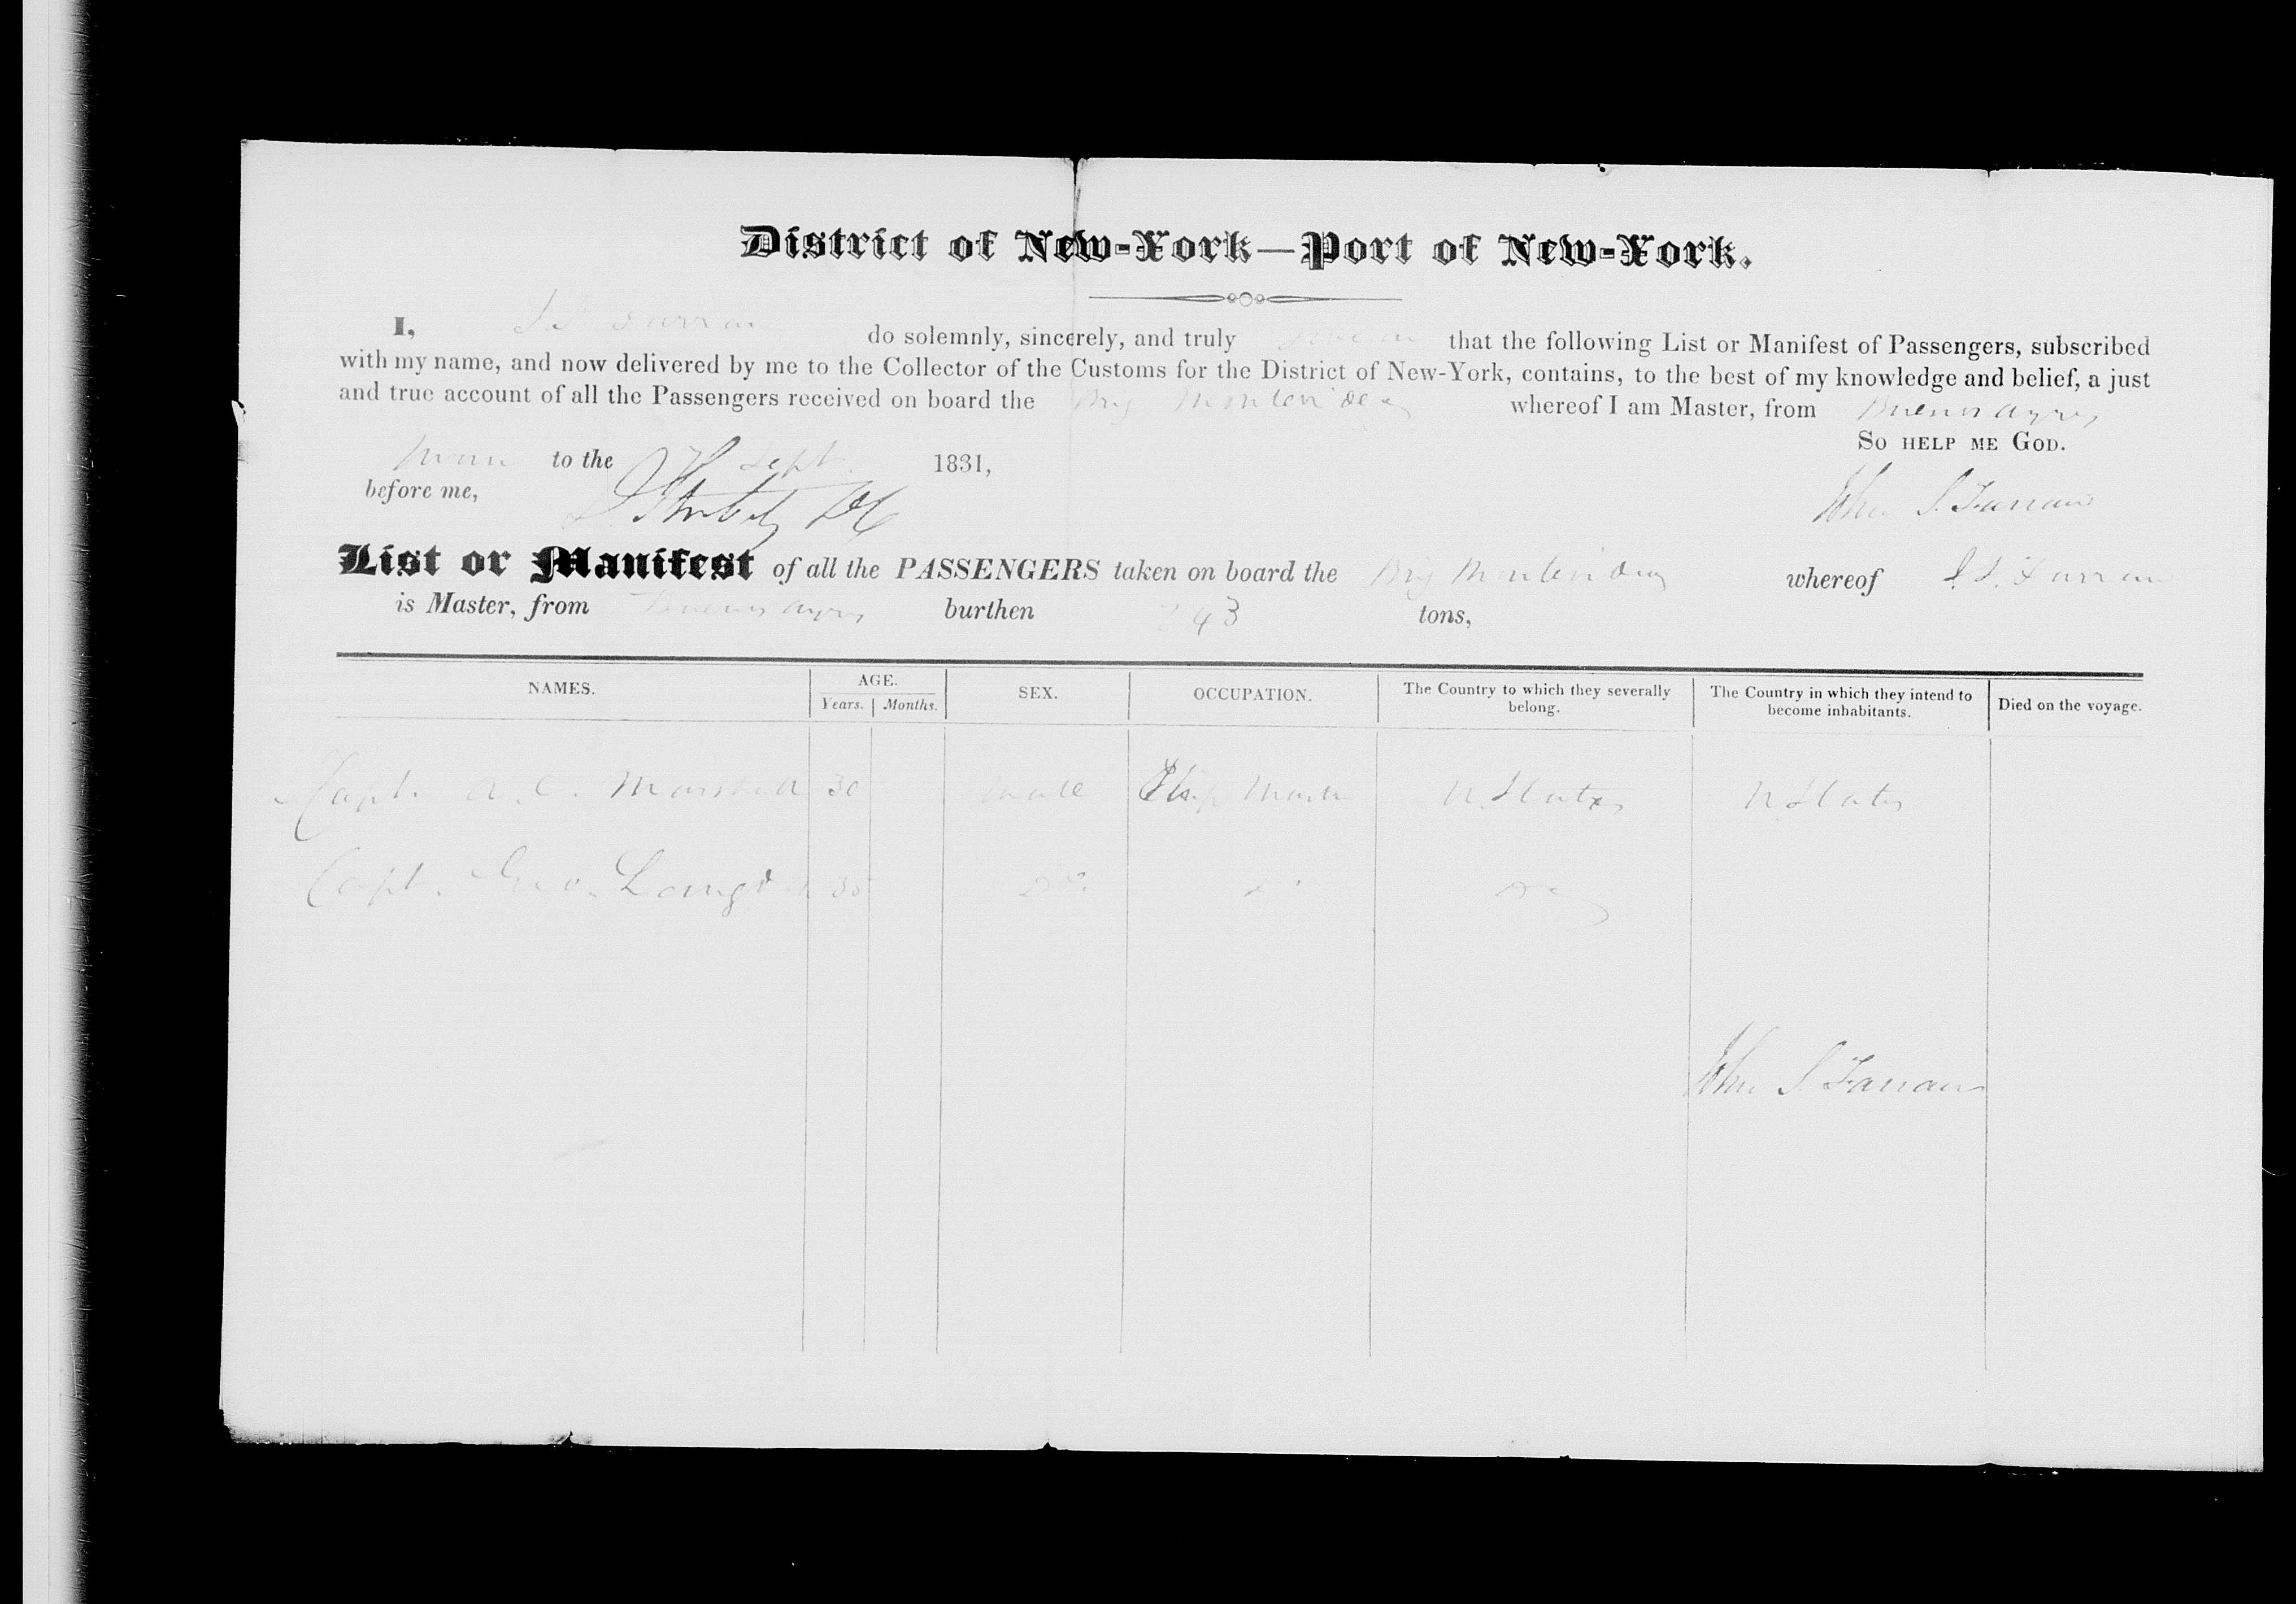 District of New-York—Port of New-York.
I, do solemnly, sincerely, and truly that the following List or Manifest of Passengers, subscribed
with my name, and now delivered by me to the Collector of the Customs for the District of New-York, contains, to the best of my knowledge and belief, a just
and true account of all the Passengers received on board the Brig Montevideo whereof I am Master, from Buenos Ayres
So help me God.
Sworn to the 7 Sept. 1831,
before me,
John S. Farran
List or Manifest of all the PASSENGERS taken on board the Brig Montevideo whereof J.S. Farran
is Master, from Buenos Ayres burthen 243 tons,
NAMES. AGE. SEX. OCCUPATION. The Country to which they severally belong. The Country in which they intend to become inhabitants. Died on the voyage.
Years. Months.
Capt. A. C. Marshall 30 Male Ship Master U. States U. States
Capt. Geo. 35 Do Do Do
John S. Farran